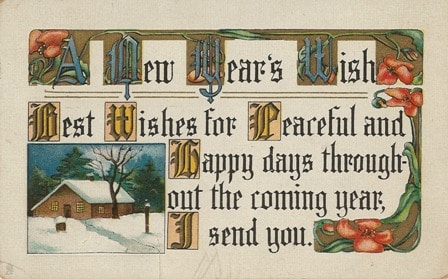 A New Year's Wish
Best Wishes for Peaceful and
Happy days through-
out the coming year,
I send you.